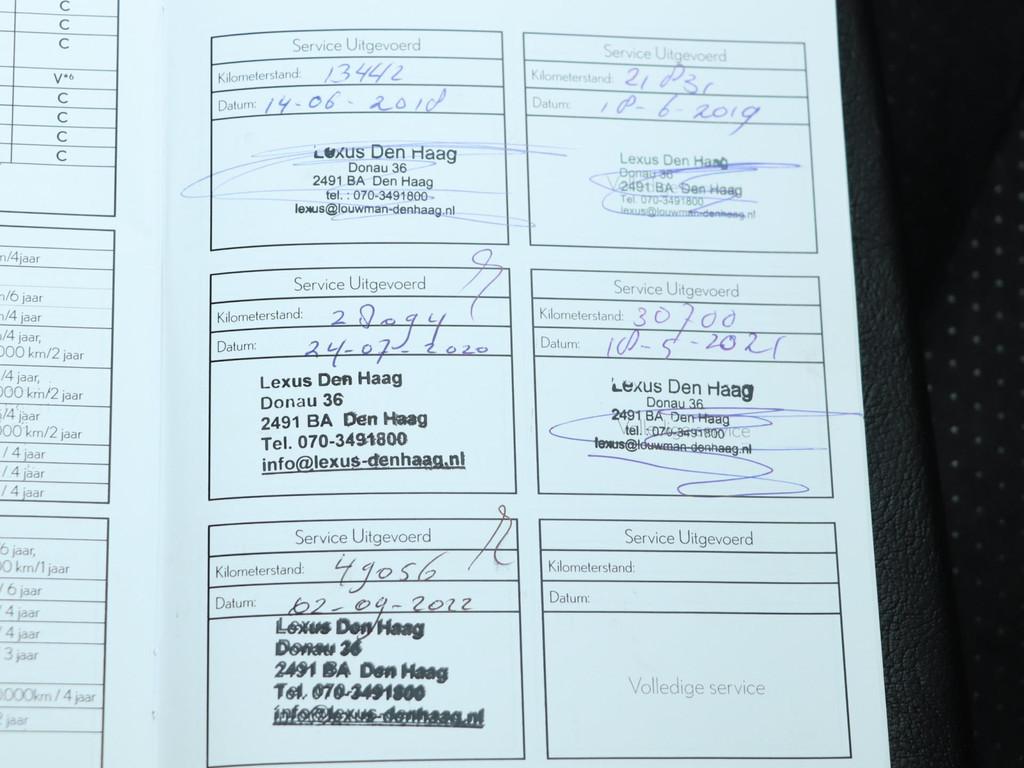 C
C
C
V*6
C
C
C
C
m/4jaar
n/6 jaar
n/4 jaar
/4 jaar,
000 km/2 jaar
/4 jaar,
00 km/2 jaar
/4 jaar
000 km/2 jaar
/ 4 jaar
/ 4 jaar
/ 4 jaar
6 jaar,
0 km/1 jaar
/ 6 jaar
4 jaar
/ 4 jaar
3 jaar
0.000km / 4 jaar
jaar
Service Uitgevoerd
Kilometerstand: 13442
Datum: 14-06-2018
Lexus Den Haag
Donau 36
2491 BA Den Haag
tel. : 070-3491800
lexus@louwman-denhaag.nl
Service Uitgevoerd
Kilometerstand: 21831
Datum: 18-6-2019
Lexus Den Haag
Donau 36
2491 BA Den Haag
Tel. 070-3491800
lexus@louwman-denhaag.nl
Service Uitgevoerd
Kilometerstand: 28094
Datum: 24-07-2020
Lexus Den Haag
Donau 36
2491 BA Den Haag
Tel. 070-3491800
info@lexus-denhaag.nl
Service Uitgevoerd
Kilometerstand: 30700
Datum: 18-5-2021
Lexus Den Haag
Donau 36
2491 BA Den Haag
tel. : 070-3491800
lexus@louwman-denhaag.nl
Service Uitgevoerd
Kilometerstand: 49056
Datum: 02-09-2022
Lexus Den Haag
Donau 36
2491 BA Den Haag
Tel. 070-3491800
info@lexus-denhaag.nl
Service Uitgevoerd
Kilometerstand:
Datum:
Volledige service